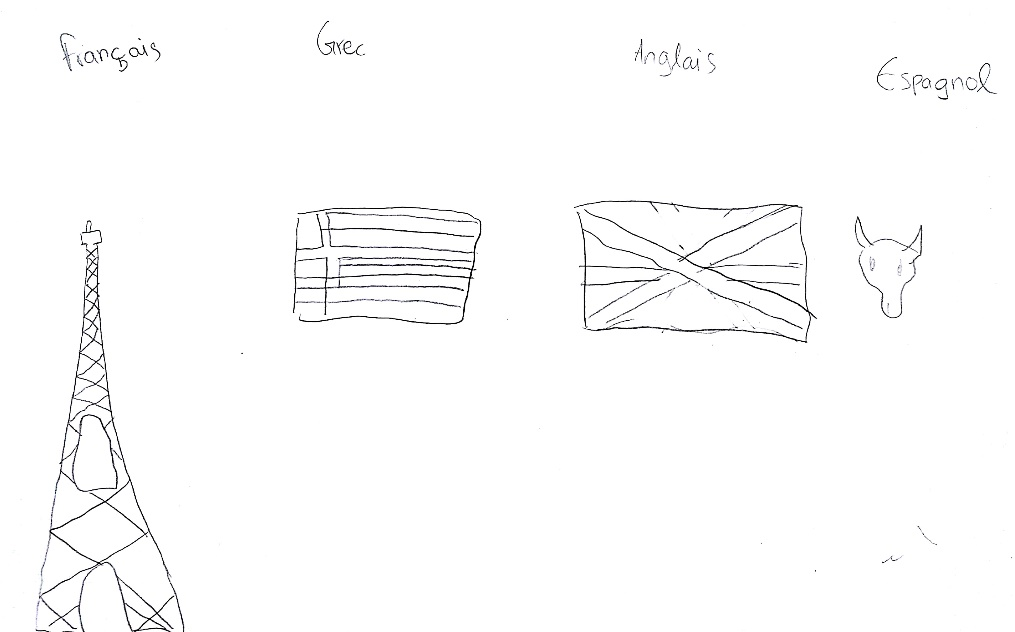 Français
Grec
Anglais
Espagnol